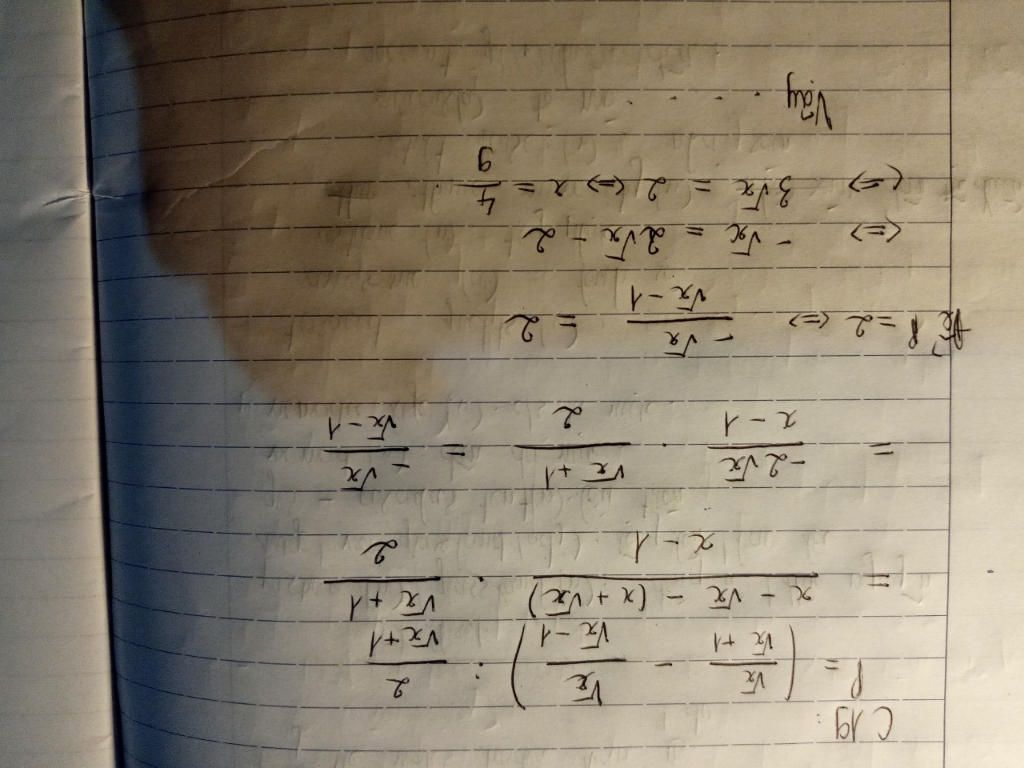 C19:
P = (√x/(√x+1) - √x/(√x-1)) : 2/(√x+1)
= (x - √x - (x+√x))/(x-1) . (√x+1)/2
= (-2√x)/(x-1) . (√x+1)/2 = (-√x)/(√x-1)
Để P = 2 <=> (-√x)/(√x-1) = 2
<=> -√x = 2√x - 2
<=> 3√x = 2 <=> x = 4/9.
Vậy . . . .